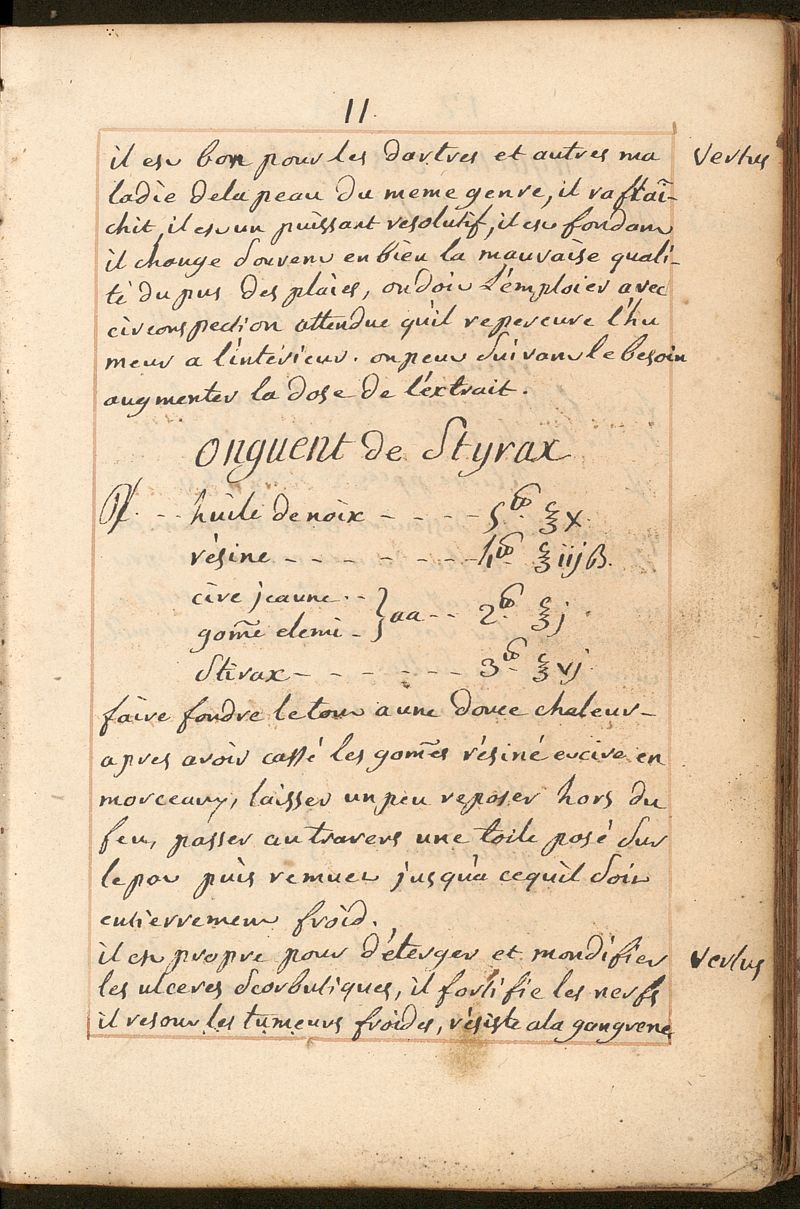 11.
il est bon pour les dartres et autres ma Vertus
ladie dela peau du meme genre, il rafraî-
chit, il est un puissant resolutif, il est fondant
il change souvent en bien la mauvaise quali-
té du pus des plaies, on doit L'emploier avec
circonspection attendue qu'il repercure l'hu
meur a l'intérieur. on peut suivant le besoin
augmenter la dose de l'extrait.
Onguent de Styrax
℞. - - huile de noix - - - - 5 ℔. ℥ x.
résine - - - - - - - - 4 ℔ - ℥ iij ß.
cire jeaune - -
gom̃e elemi - } aa - - 2. ℔ ℥ j.
Stirax - - - - - - - 3 ℔ - ℥ vj.
faire fondre le tout a une douce chaleur -
apres avoir cassé les gom̃es résine et cire en
morceaux, laisser un peu reposer hors du
feu, passer au travers une toile posé sur
le pot puis remuer jusqu'a cequ'il soit
entierrement froid.
il est propre pour déterger et mondifier Vertus
les ulceres scorbutiques, il fortifie les nerfs
il resout les tumeurs froides, résiste ala gangrene